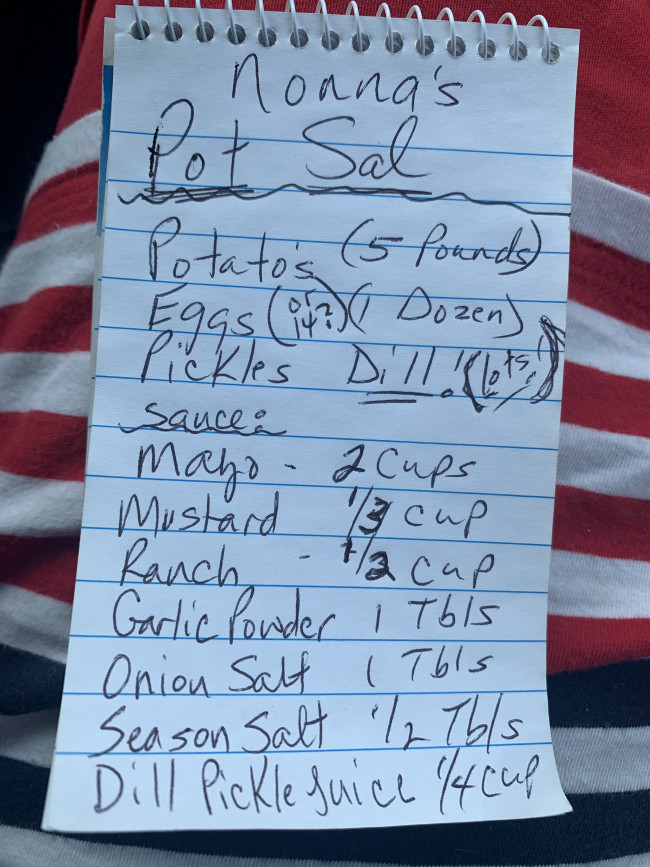 Nonna's
Pot Sal
Potato's (5 Pounds)
Eggs (or 14?) (1 Dozen)
Pickles Dill! (Lots!)
Sauce:
Mayo - 2 Cups
Mustard 1/3 cup
Ranch - 1/2 cup
Garlic Powder 1 Tbls
Onion Salt 1 Tbls
Season Salt 1/2 Tbls
Dill Pickle Juice 1/4 cup